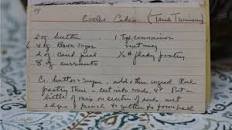 Eccles Cakes (Tana Tunnicu)
2 oz. butter 1 Tsp cinnamon
4 oz. Brown Sugar nutmeg
2 oz. Cand. peel ½ # flaky pastry
8 oz. currants
Cr. butter & sugar, add other ingred. Roll
pastry thin - cut into rounds 4". Put a
little of mix in center of each, wet
edges &